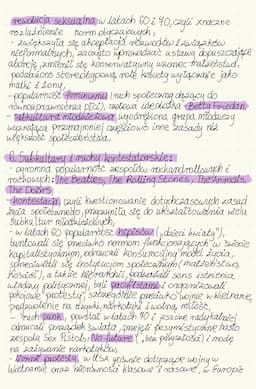 rewolucja seksualna w latach 60 i 70, czyli znaczne
rozluźnienie norm obyczajowych,
- zwiększyła się akceptacja rozwodów i związków
nieformalnych, zaczęto wprowadzać ustawy dopuszczające
aborcję, zmienił się konserwatywny wzorzec małżeństwa,
podważono stereotypową rolę kobiety wyłącznie jako
matki i żony,
- popularność feminizmu (ruch społeczny dążący do
równouprawnienia płci), czołowa ideolożka - Betty Friedan,
- subkultura młodzieżowa, wyodrębiona grupa młodzieży
wyznająca przynajmniej częściowo inne zasady niż
większość społeczeństwa.
6. Subkultury i ruchy kontestatorskie:
- ogromna popularność zespołów rockandrollowych i
rockowych: The Beatles, The Rolling Stones, The Animals,
The Doors,
- kontestacja, czyli kwestionowanie dotychczasowych zasad
życia społecznego, przyczyniła się do ukształtowania wielu
subkultur młodzieżowych,
- w latach 60 popularność hipisów ("dzieci kwiaty"),
buntowali się przeciwko normom funkcjonującym w świecie
kapitalistycznym, odrzucali konsumpcyjny model życia,
sprzeciwiali się instytucjom społecznym (małżeństwo,
Kościół), a także hierarchii, podważali sens istnienia
władzy politycznej, byli pacyfistami i organizowali
pokojowe protesty, szczególnie przeciwko wojnie w Wietnamie,
pozytywnie na dźwięki, narkotyki i wolną miłość,
- ruch punk, powstał w latach 70 i jeszcze radykalniej
odrzucali porządek świata, przejęli pesymistyczne hasło
zespołu Sex Pistols: No future (bez przyszłości) i modę
na zażywanie narkotyków,
- liczne protesty, w USA głównie dotyczące wojny w
Wietnamie oraz nierówności klasowe i rasowe, w Europie